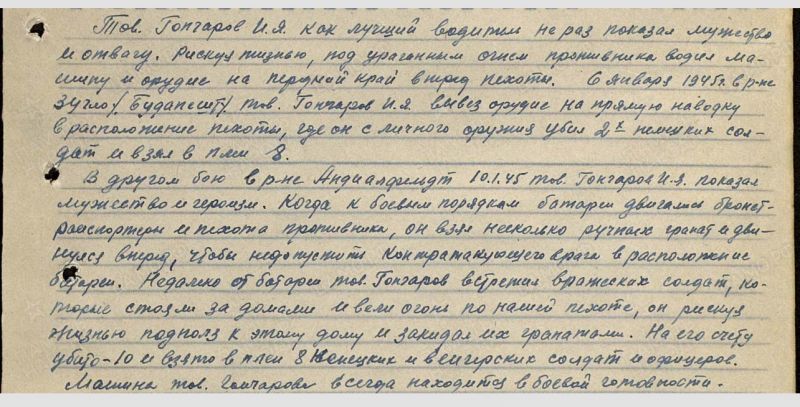 Тов. Гончаров И.Я. как лучший водитель не раз показал мужество
и отвагу. Рискуя жизнью, под ураганным огнем противника водил ма-
шину и орудие на передний край вперед пехоты. 6 января 1945г. в р-не
Зугло /Будапешт/ тов. Гончаров И.Я. вывез орудие на прямую наводку
в расположение пехоты, где он с личного оружия убил 2х немецких сол-
дат и взял в плен 8.
В другом бою в р-не Андиалфельдт 10.1.45 тов. Гончаров И.Я. показал
мужество и героизм. Когда к боевым порядкам батареи двигались бронет-
ранспортеры и пехота противника, он взял несколько ручных гранат и дви-
нулся вперед, чтобы недопустить контратакующего врага в расположение
батареи. Недалеко от батареи тов. Гончаров встретил вражеских солдат, ко-
торые стояли за домами и вели огонь по нашей пехоте, он рискуя
жизнью подполз к этому дому и закидал их гранатами. На его счету
убито-10 и взято в плен 8 немецких и венгерских солдат и офицеров.
Машина тов. Гончарова всегда находится в боевой готовности.